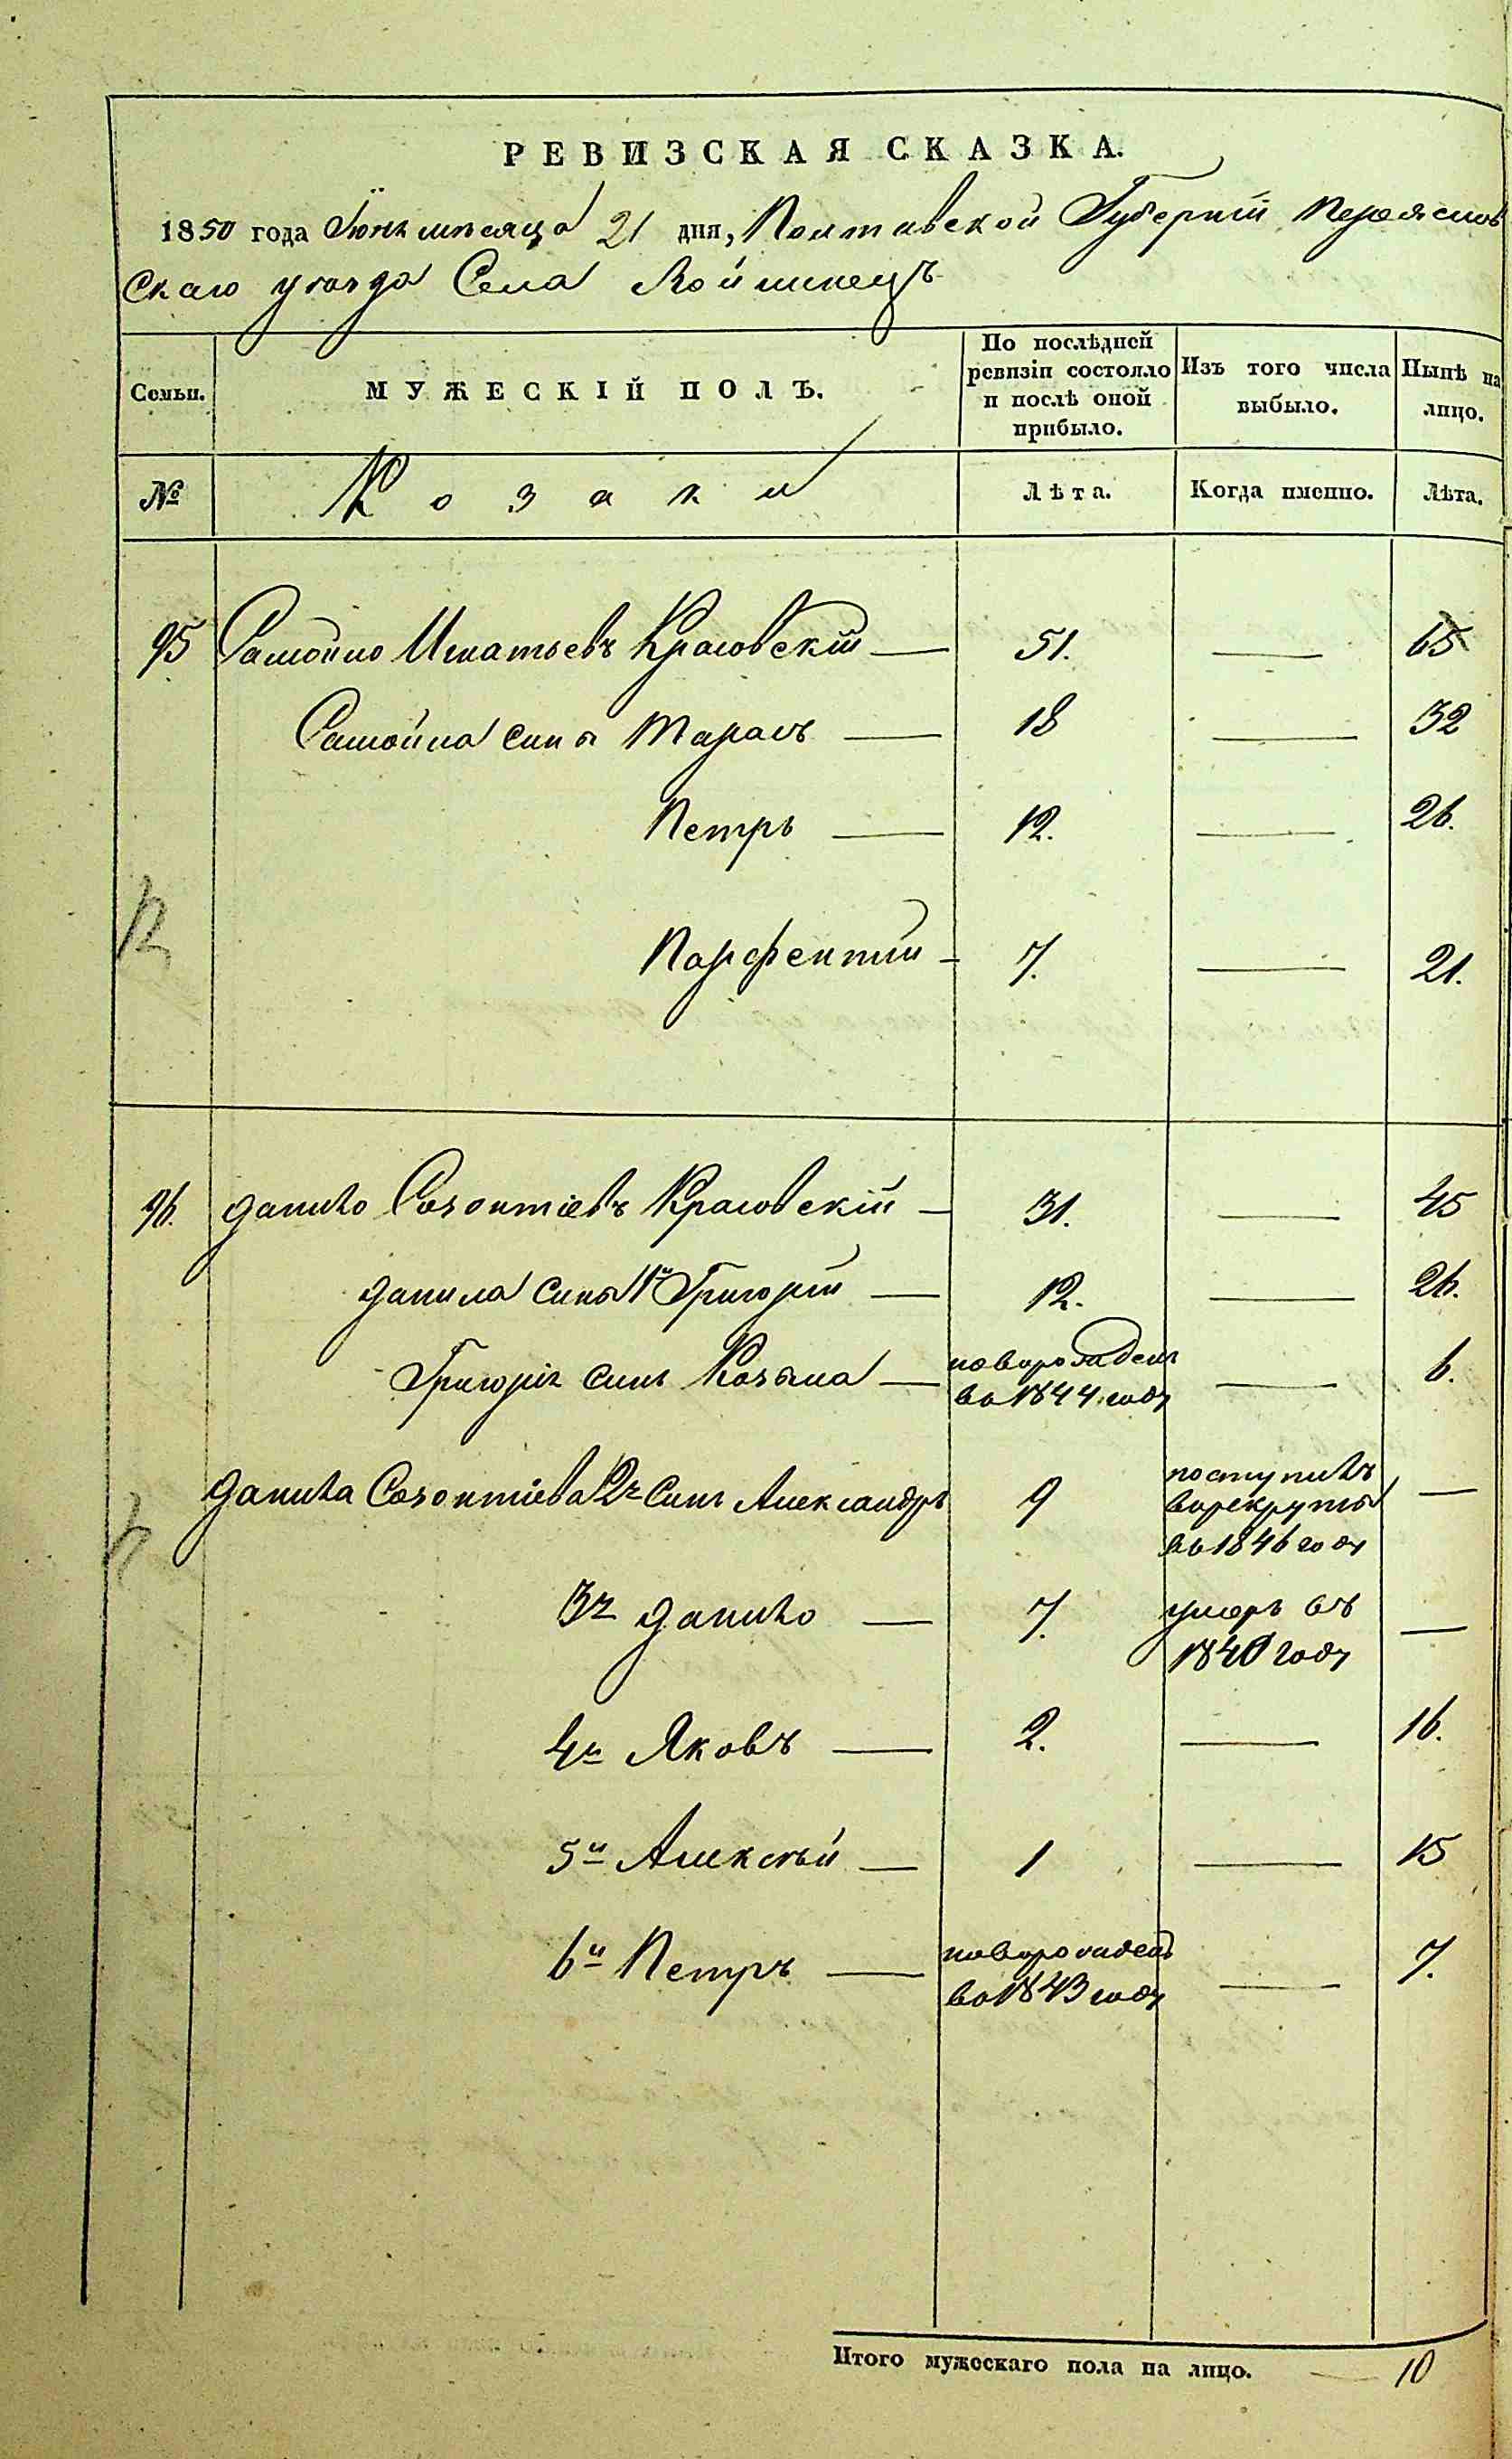 РЕВИЗСКАЯ СКАЗКА.
1850 года Іюня мѣсяца 21 дня, Полтавской Губерніи Переяслов
скаго уѣзда Села Войтинецъ
Семьи. МУЖЕСКІЙ ПОЛЪ. По послѣдней ревизіи состояло и послѣ оной прибыло. Изъ того числа выбыло. Нынѣ на лицо.
№ Козаки Лѣта. Когда именно. Лѣта.
95 Самойло Игнатьевъ Красовскій — 51. — 65
Самойла сины Тарасъ — 18 — 32
Петръ — 12. — 26.
Парфентій — 7. — 21.
96. Данило Созонтіевъ Красовскій — 31. — 45
Данила сины 1й Григорій — 12. — 26.
Григорія синъ Козьма — новорожденъ — 6.
во 1844 году
Данила Созонтіева 2й Синъ Александръ 9 поступилъ —
в рекруты
въ 1846 году
3й Данило — 7. умеръ въ —
1840 году
4й Яковъ — 2. — 16.
5й Алексѣй — 1 — 15
6й Петръ — новорожденъ — 7.
во 1843 году
Итого мужескаго пола на лицо. — 10